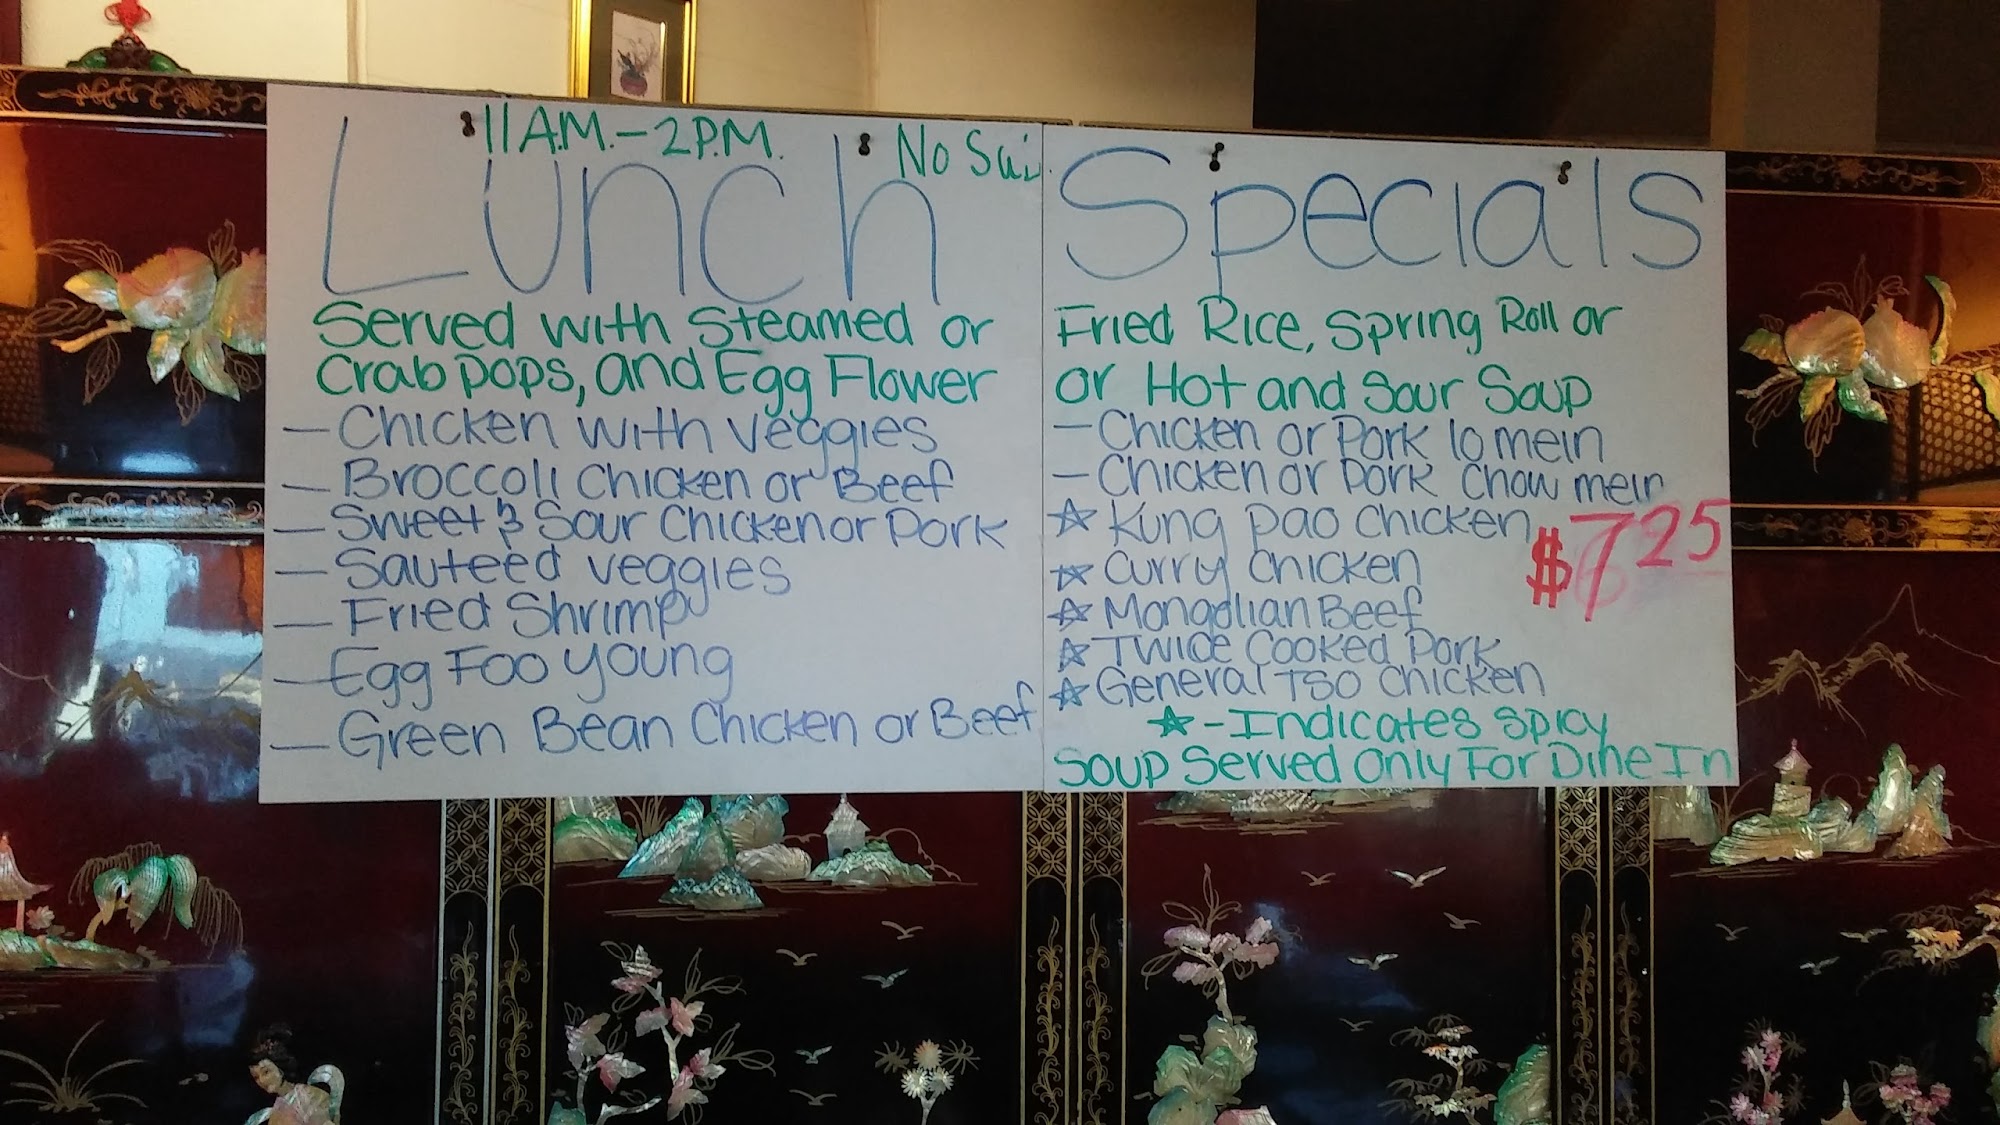 11 A.M. - 2 P.M. No Su
Lunch Specials
Served with Steamed or Fried Rice, Spring Roll or
Crab pops, and Egg Flower or Hot and Sour Soup
- Chicken with veggies
- Broccoli Chicken or Beef
- Sweet & Sour Chicken or Pork
- Sauteed veggies
- Fried Shrimp
- Egg Foo young
- Green Bean Chicken or Beef
- Chicken or Pork lo mein
- Chicken or Pork chow mein
☆ Kung pao chicken
$7.25
☆ Curry Chicken
☆ Mongolian Beef
☆ Twice Cooked Pork
☆ General TSO Chicken
☆ - Indicates Spicy
Soup Served Only For Dine In